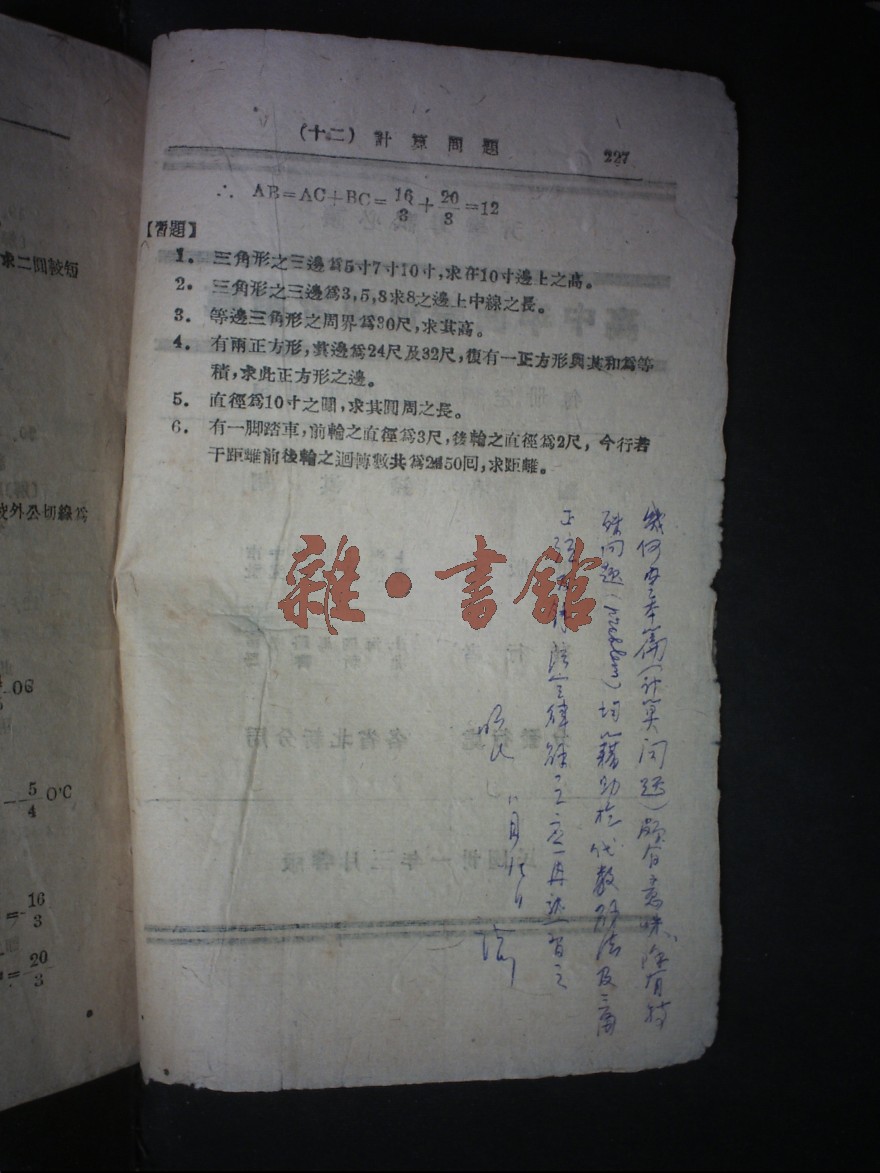 (十二) 計算問題 227
∴ AB=AC+BC=16/3+20/3=12
【習題】
1. 三角形之三邊爲5寸7寸10寸,求在10寸邊上之高。
2. 三角形之三邊爲3,5,8求8之邊上中線之長。
3. 等邊三角形之周界爲90尺,求其高。
4. 有兩正方形,其邊爲24尺及32尺,復有一正方形與其和爲等
積,求此正方形之邊。
5. 直徑爲10寸之圓,求其圓周之長。
6. 有一脚踏車,前輪之直徑爲3尺,後輪之直徑爲2尺,今行若
干距離前後輪之迴轉數共爲2450回,求距離。
求二圓較短
外公切線爲
.06
-5/4 O'C
=16/3
=20/3
雜·書館
幾何內之本篇(計算問題)頗合意味,除有特
殊問題(problem)均藉助於代數解法及三角